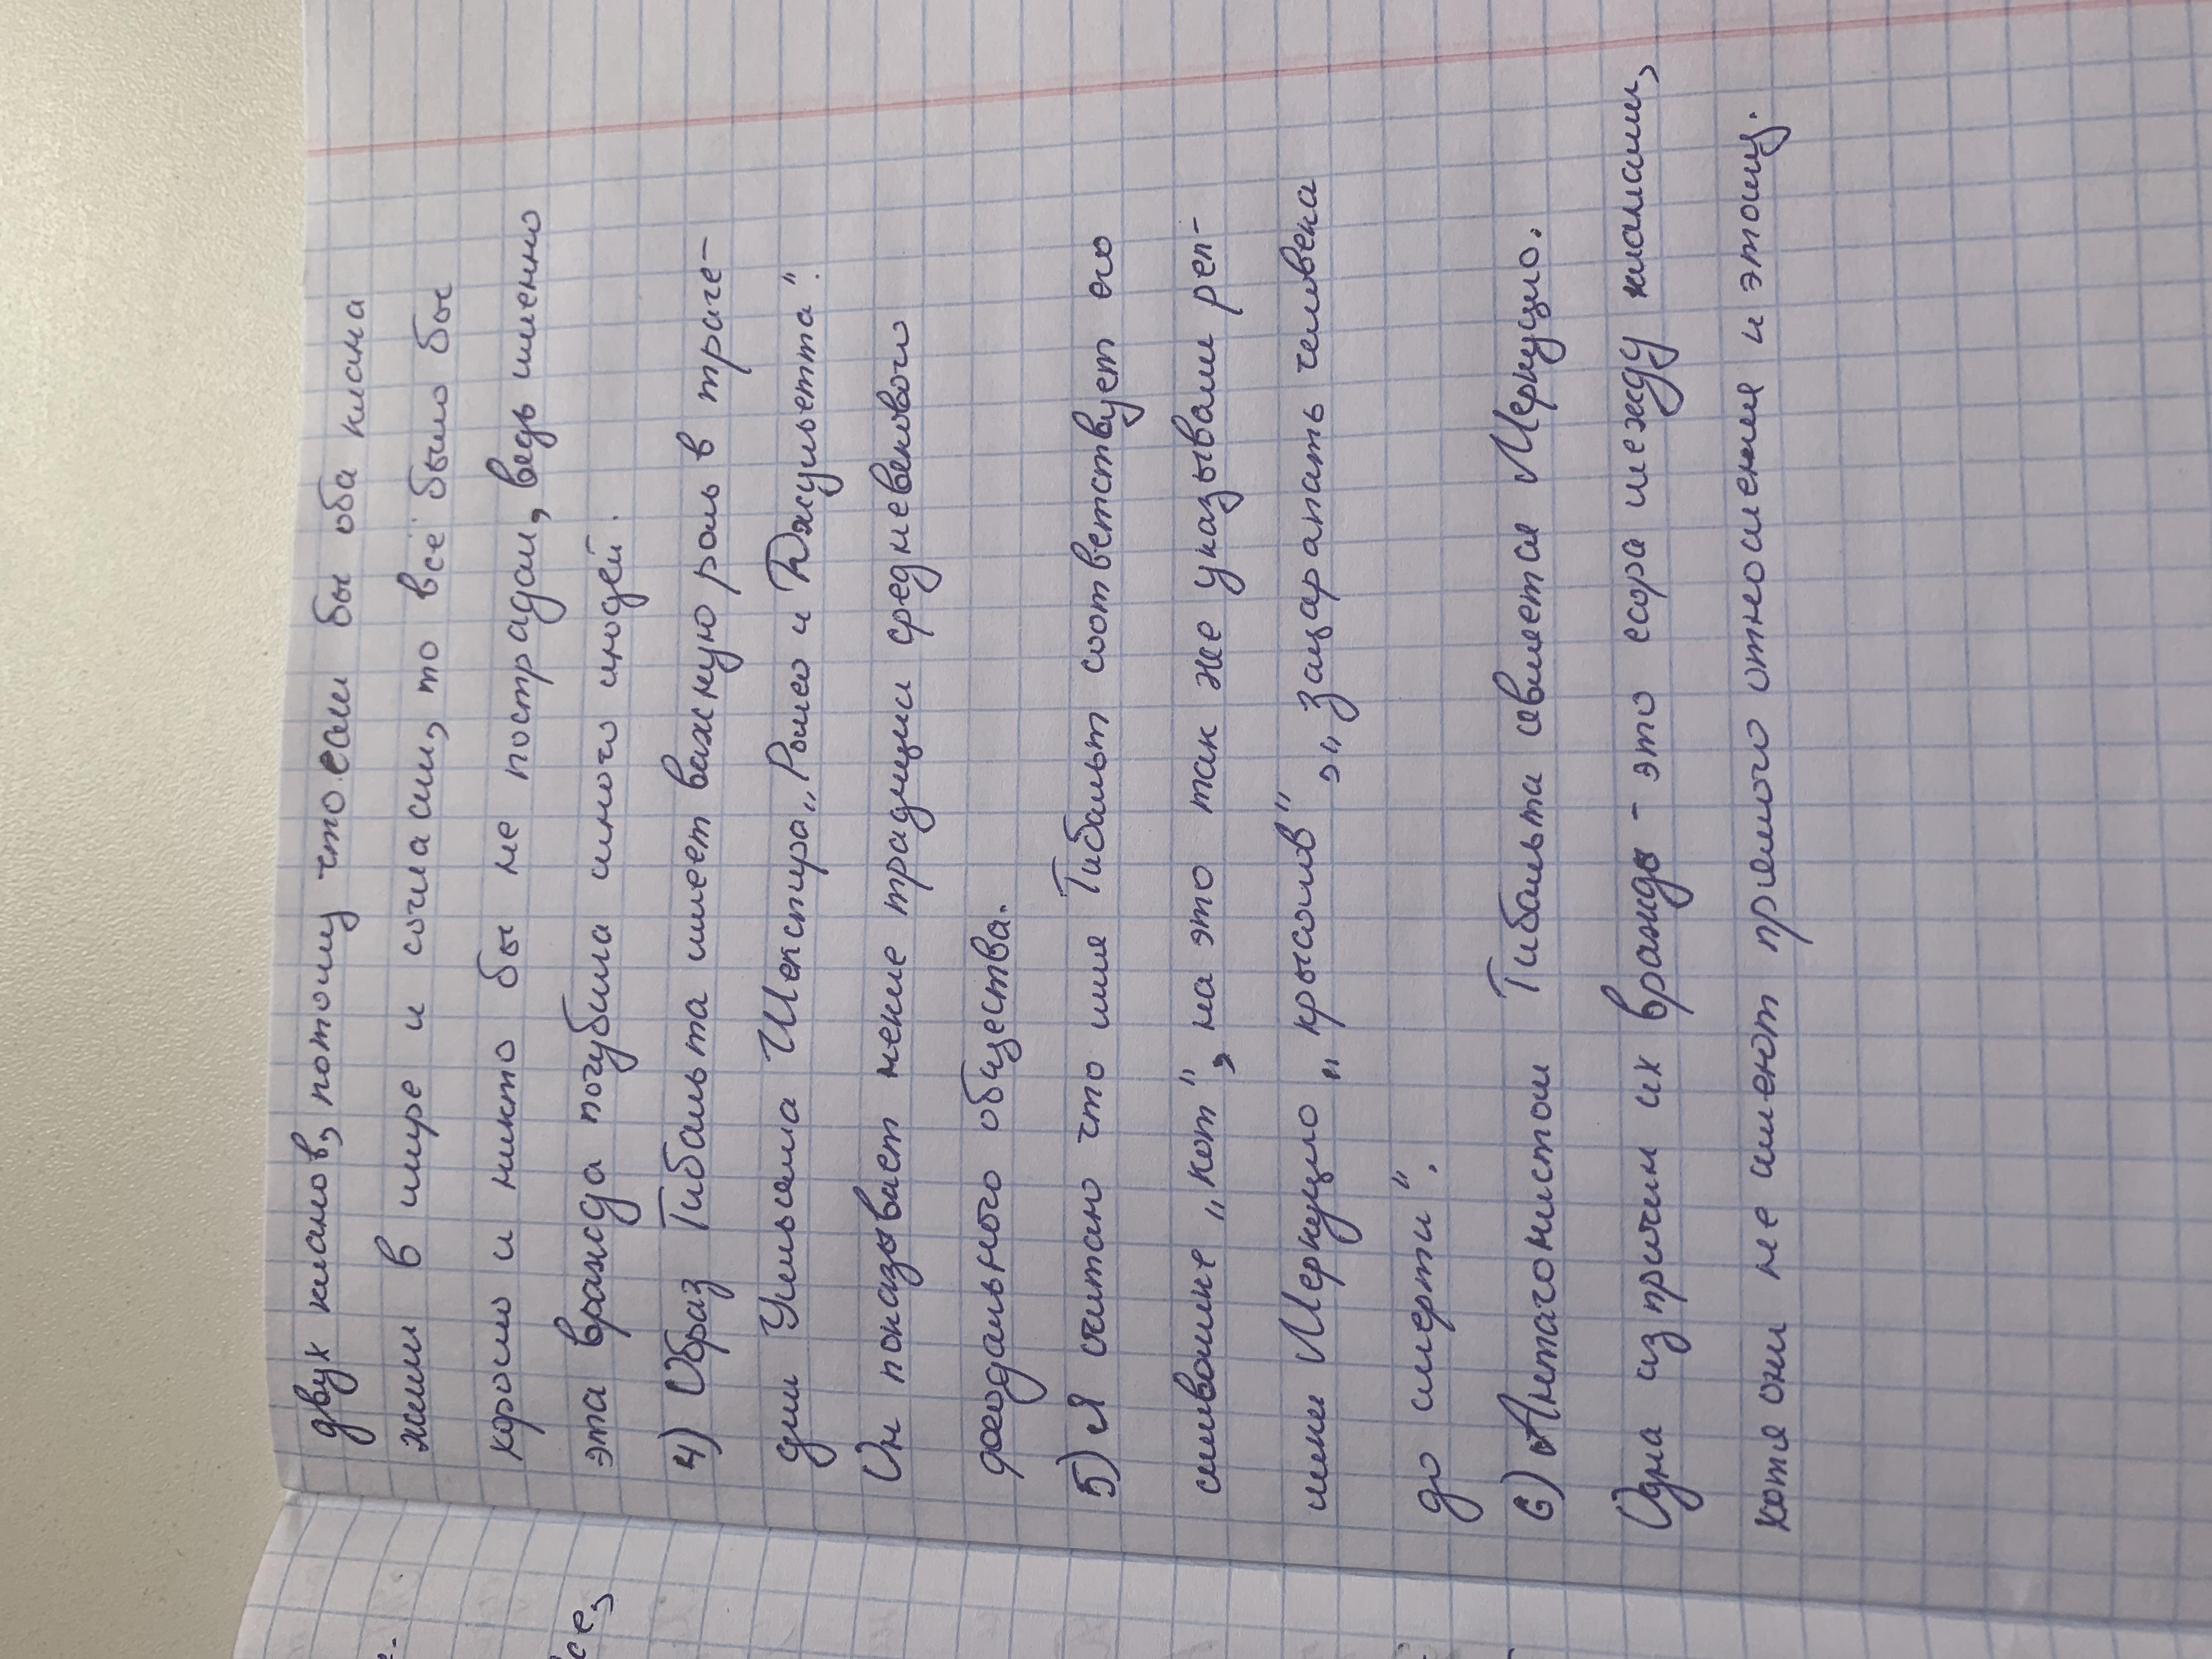 двух кланов, потому что если бы оба клана
жили в мире и согласии, то всё было бы
хорошо и никто бы не пострадал, ведь именно
эта вражда погубила много людей.
4) Образ Тибальта имеет важную роль в траге-
дии Уильяма Шекспира „Ромео и Джульетта".
Он показывает некие традиции средневекового
феодального общества.
5) Я считаю что имя Тибальт соответствует его
символике „кот", на это так же указывали реп-
лики Меркуцио „крысолов", „зацарапать человека
до смерти".
6) Антагонистом Тибальта является Меркуцио.
Одна из причин их вражды - это ссора между кланами,
хотя они не имеют прямого отношения к этому.